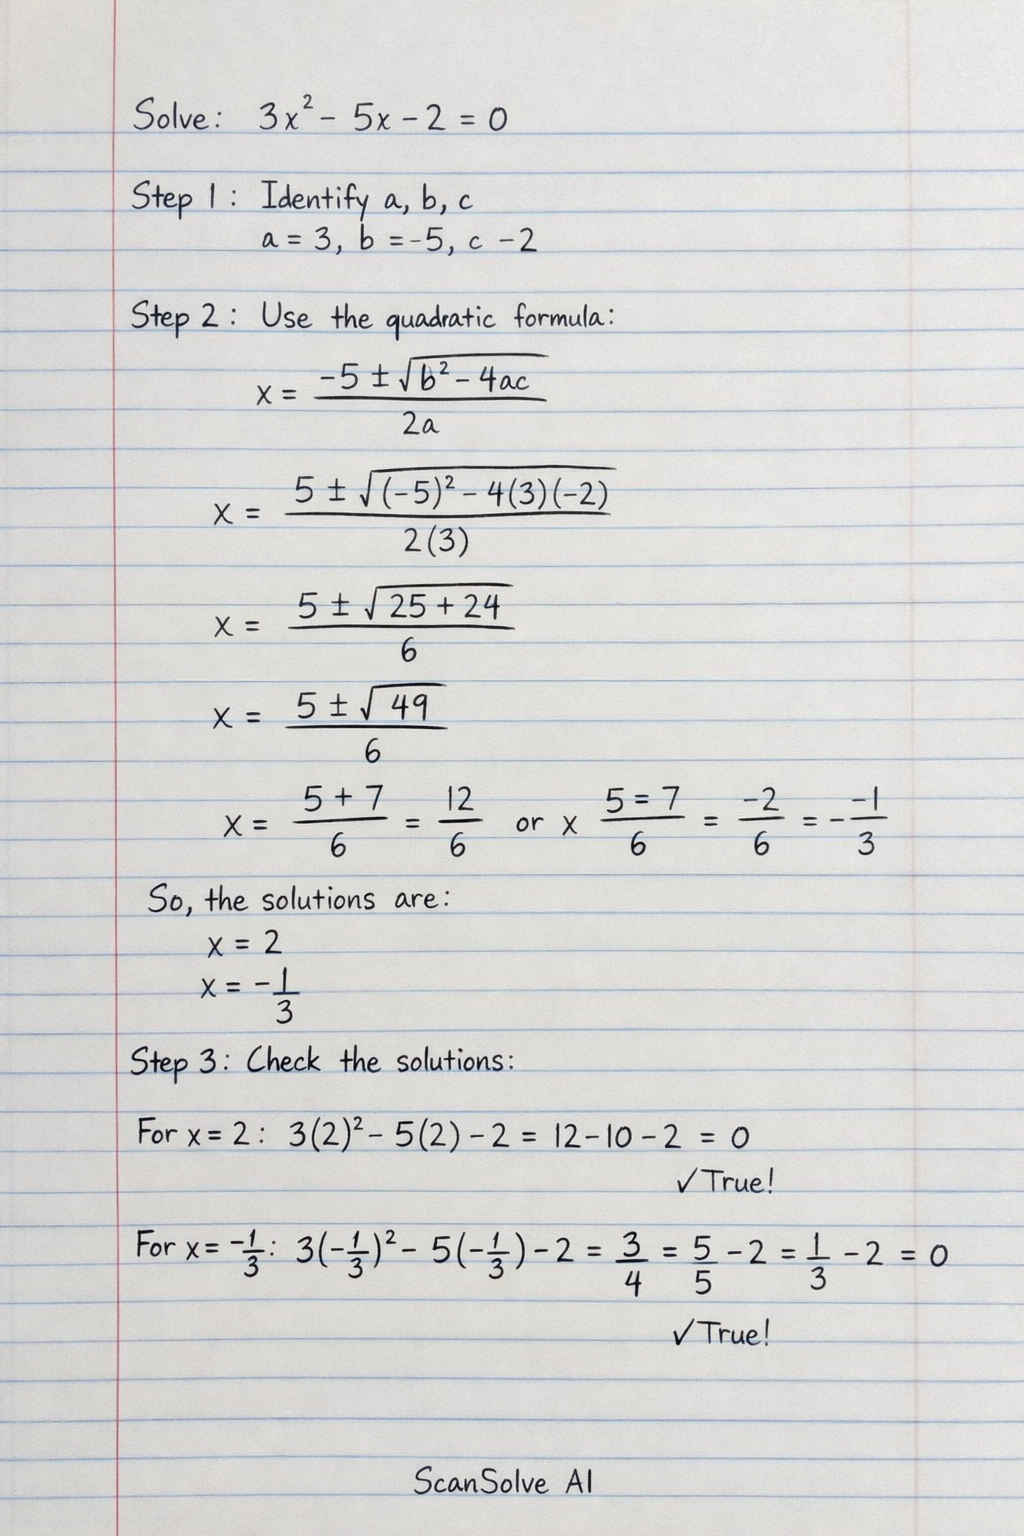 Solve: 3x² - 5x - 2 = 0
Step 1: Identify a, b, c
a = 3, b = -5, c -2
Step 2: Use the quadratic formula:
x = (-5 ± √(b² - 4ac)) / (2a)
x = (5 ± √((-5)² - 4(3)(-2))) / (2(3))
x = (5 ± √(25 + 24)) / 6
x = (5 ± √49) / 6
x = (5 + 7)/6 = 12/6 or x (5 = 7)/6 = -2/6 = - -1/3
So, the solutions are:
x = 2
x = -1/3
Step 3: Check the solutions:
For x = 2: 3(2)² - 5(2) - 2 = 12 - 10 - 2 = 0
✓ True!
For x = -1/3: 3(-1/3)² - 5(-1/3) - 2 = 3/4 = 5/5 - 2 = 1/3 - 2 = 0
✓ True!
ScanSolve AI